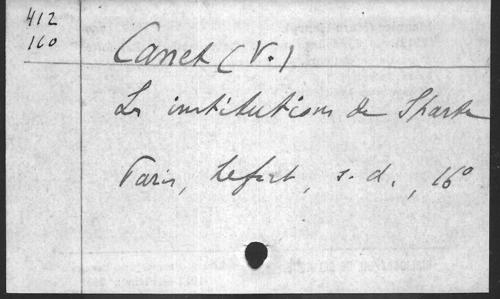 412
160
Canet (V.)
Les institutions de Sparte
Paris, Lefort, s. d., 16°